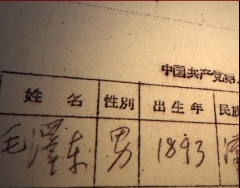 中国共产党
姓名 性別 出生年 民族
毛澤东 男 1893